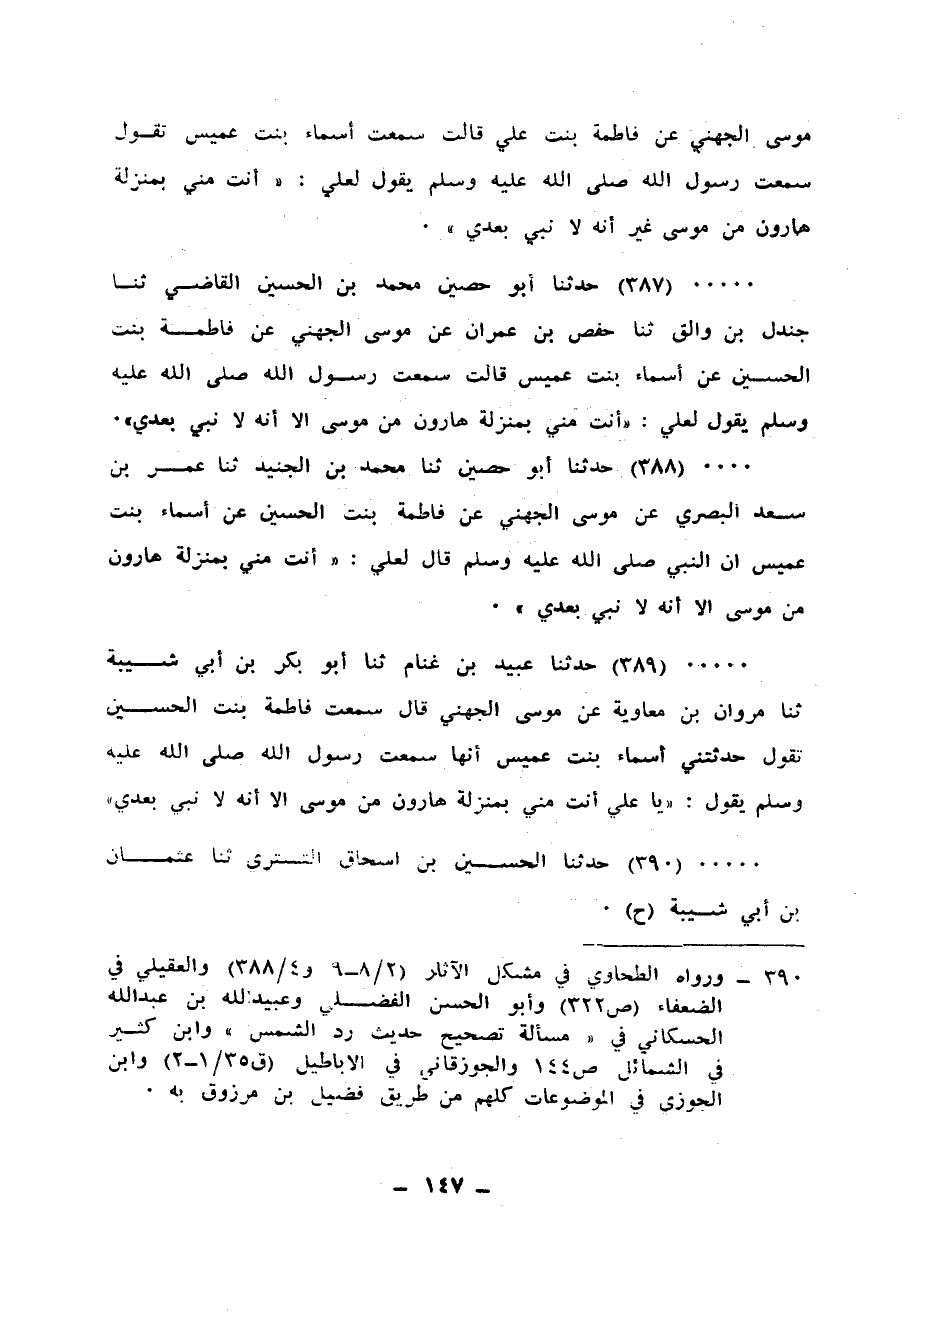 موسى الجهني عن فاطمة بنت علي قالت سمعت أسماء بنت عميس تقول
سمعت رسول الله صلى الله عليه وسلم يقول لعلي : « أنت مني بمنزلة
هارون من موسى غير أنه لا نبي بعدي » ٠
٠٠٠٠٠ (٣٨٧) حدثنا أبو حصين محمد بن الحسين القاضي ثنا
جندل بن والق ثنا حفص بن عمران عن موسى الجهني عن فاطمة بنت
الحسين عن أسماء بنت عميس قالت سمعت رسول الله صلى الله عليه
وسلم يقول لعلي : «أنت مني بمنزلة هارون من موسى الا أنه لا نبي بعدي»٠
٠٠٠٠ (٣٨٨) حدثنا أبو حصين ثنا محمد بن الجنيد ثنا عمر بن
سعد البصري عن موسى الجهني عن فاطمة بنت الحسين عن أسماء بنت
عميس ان النبي صلى الله عليه وسلم قال لعلي : « أنت مني بمنزلة هارون
من موسى الا أنه لا نبي بعدي » ٠
٠٠٠٠٠ (٣٨٩) حدثنا عبيد بن غنام ثنا أبو بكر بن أبي شيبة
ثنا مروان بن معاوية عن موسى الجهني قال سمعت فاطمة بنت الحسين
تقول حدثتني أسماء بنت عميس أنها سمعت رسول الله صلى الله عليه
وسلم يقول : «يا علي أنت مني بمنزلة هارون من موسى الا أنه لا نبي بعدي»
٠٠٠٠٠ (٣٩٠) حدثنا الحسين بن اسحاق التسترى ثنا عثمان
بن أبي شيبة (ح) ٠
٣٩٠ ـ ورواه الطحاوي في مشكل الآثار (٨/٢ـ٩ و٣٨٨/٤) والعقيلي في
الضعفاء (ص٣٢٢) وأبو الحسن الفضلي وعبيدالله بن عبدالله
الحسكاني في « مسألة تصحيح حديث رد الشمس » وابن كثير
في الشمائل ص١٤٤ والجوزقاني في الاباطيل (ق١/٣٥ـ٢) وابن
الجوزى في الموضوعات كلهم من طريق فضيل بن مرزوق به ٠
ـ ١٤٧ ـ